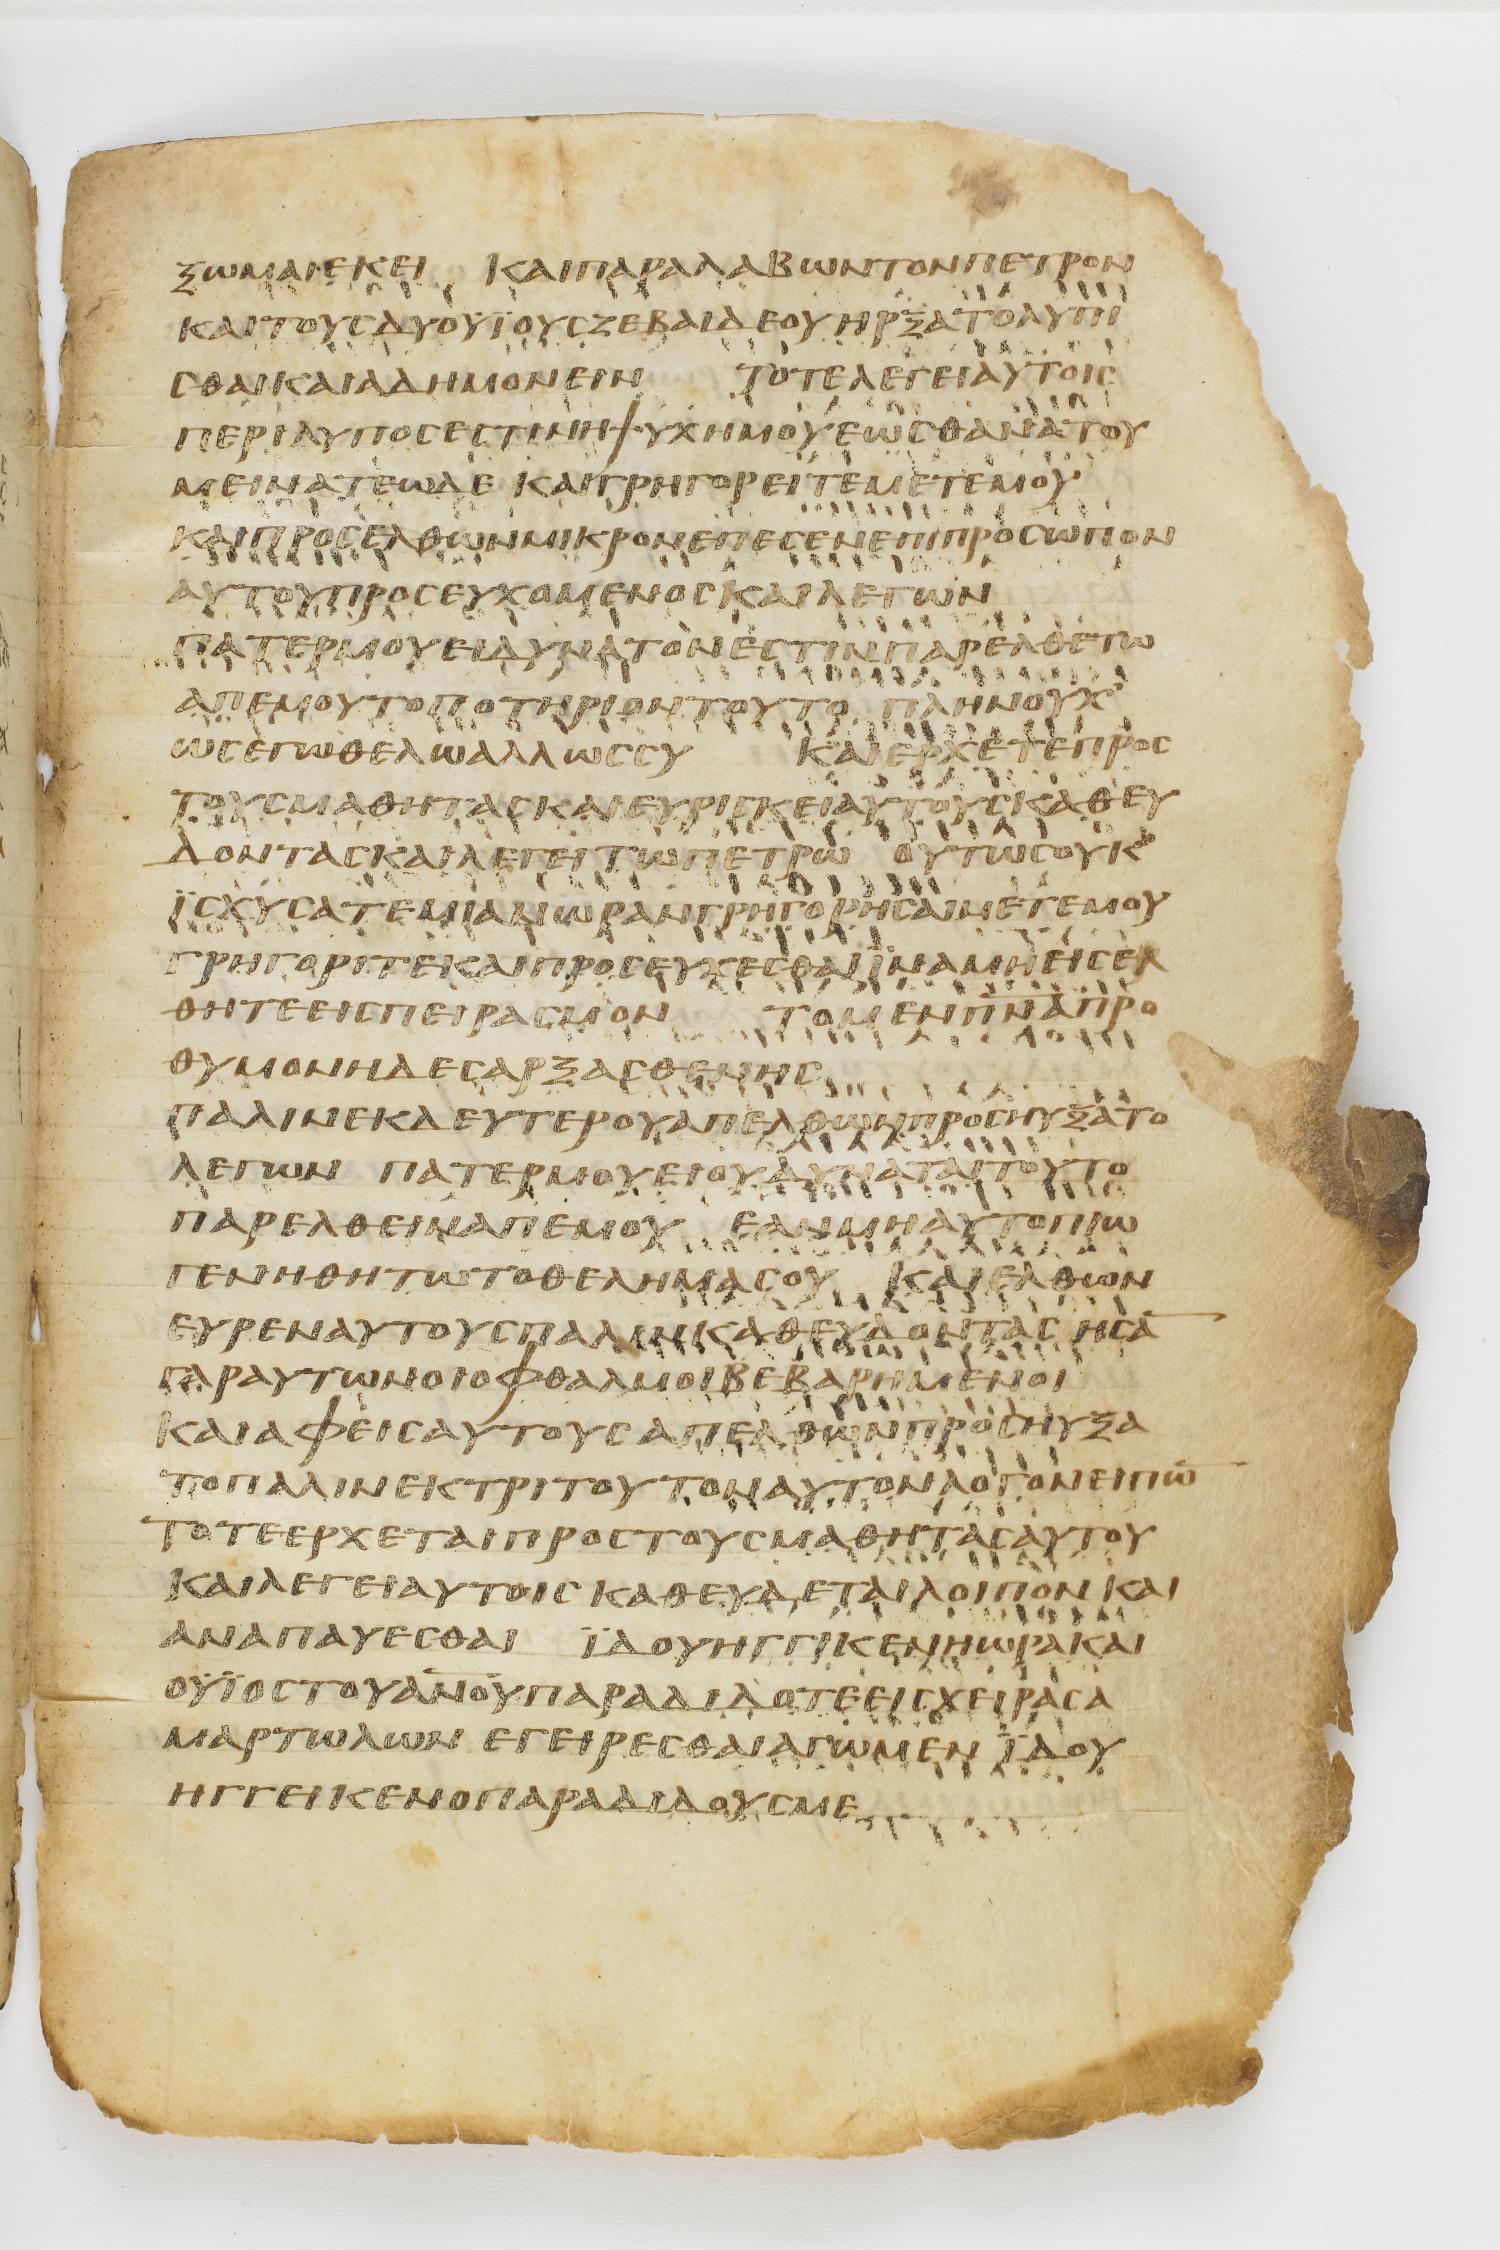 ξωμαι εκει και παραλαβων τον πετρον
και τους δυο ϋϊους ζεβαιδεου ηρξατο λυπι
σθαι και αδημονειν τοτε λεγει αυτοις
περιλυπος εστιν η ψυχη μου εως θανατου
μεινατε ωδε και γρηγορειτε μετ εμου
και προσελθων μικρον επεσεν επι προσωπον
αυτου προσευχομενος και λεγων
πατερ μου ει δυνατον εστιν παρελθετω
απ εμου το ποτηριον τουτο πλην ουχ
ως εγω θελω αλλ ως συ και ερχετε προς
τους μαθητας και ευρισκει αυτους καθευ
δοντας και λεγει τω πετρω ουτως ουκ
ϊσχυσατε μιαν ωραν γρηγορησαι μετ εμου
γρηγοριτε και προσευχεσθαι ϊνα μη εισελ
θητε εις πειρασμον το μεν π̅ν̅α̅ προ
θυμον η δε σαρξ ασθενης
παλιν εκ δευτερου απελθων προσηυξατο
λεγων πατερ μου ει ου δυναται τουτο
παρελθειν απ εμου εαν μη αυτο πιω
γενηθητω το θελημα σου και ελθων
ευρεν αυτους παλιν καθευδοντας ησα̅
γαρ αυτων οι οφθαλμοι βεβαρημενοι
και αφεις αυτους απελθων προσηυξα
το παλιν εκ τριτου τον αυτον λογον ειπω̅
τοτε ερχεται προς τους μαθητας αυτου
και λεγει αυτοις καθευδεται λοιπον και
αναπαυεσθαι ϊδου ηγγικεν η ωρα και
ο ϋϊος του α̅ν̅ο̅υ̅ παραδιδοτε εις χειρας α
μαρτωλων εγειρεσθαι αγωμεν ϊδου
ηγγεικεν ο παραδιδους με